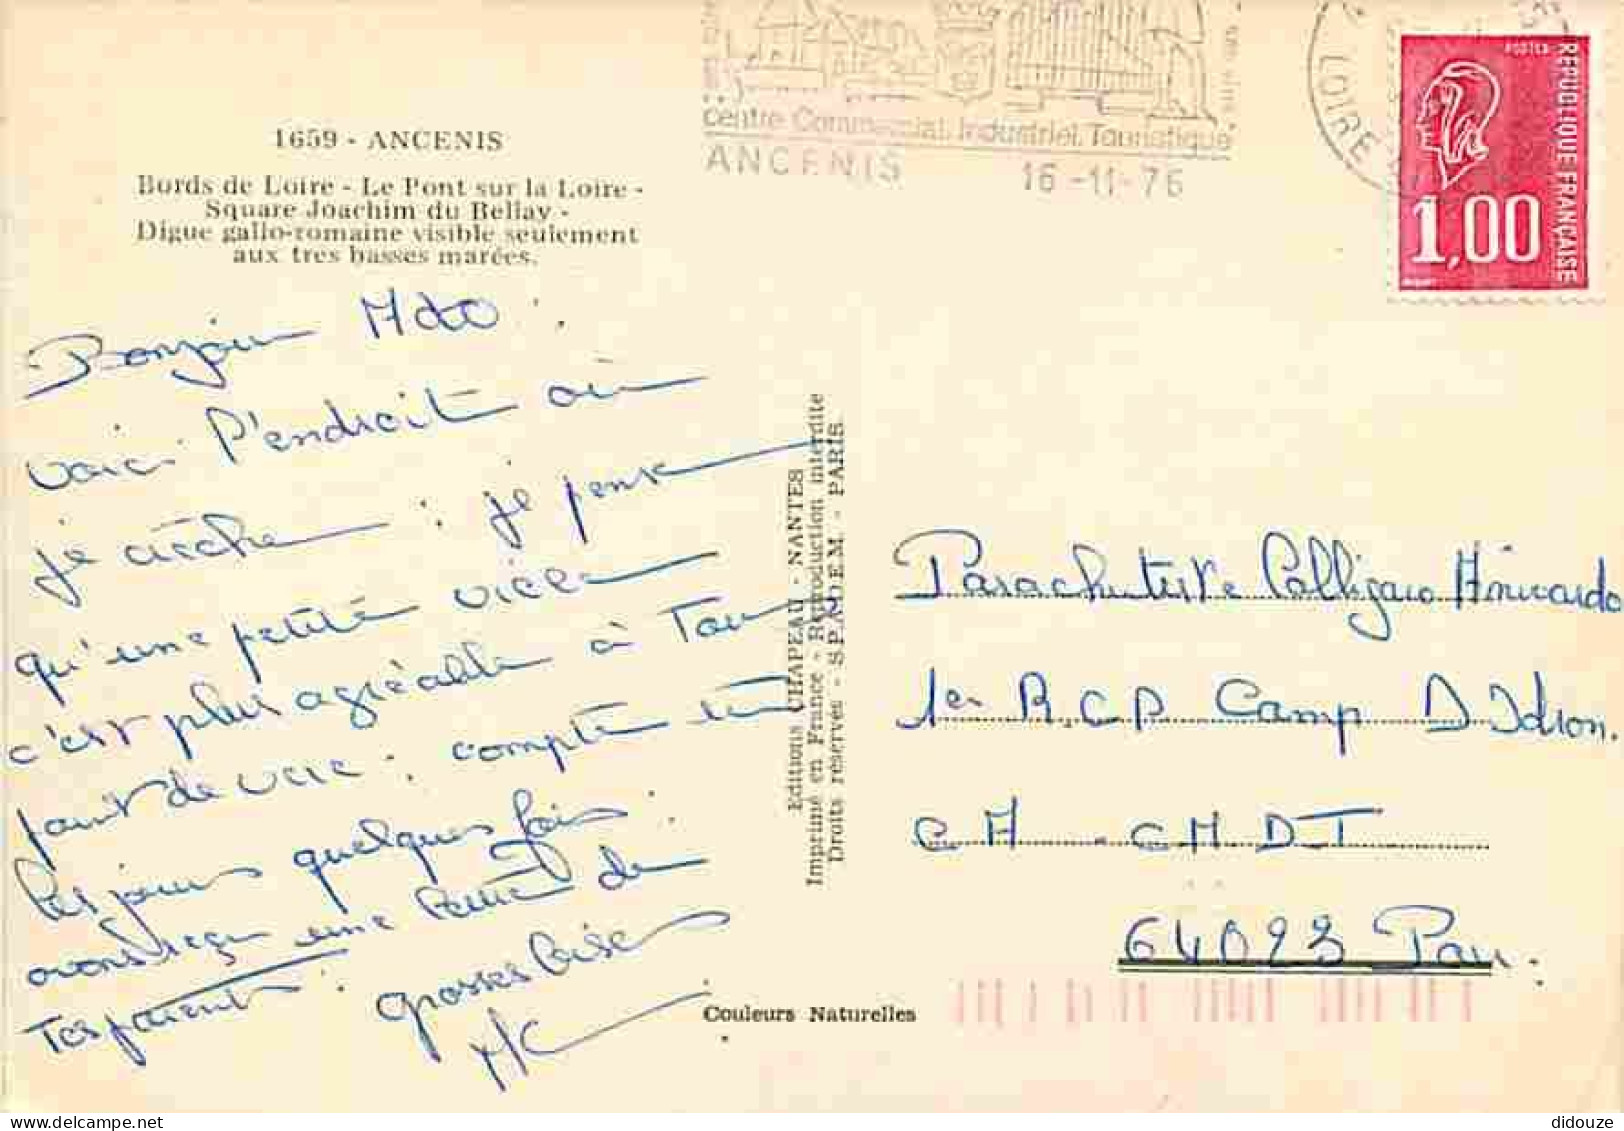 1659 - ANCENIS
Bords de Loire - Le Pont sur la Loire -
Square Joachim du Bellay -
Digue gallo-romaine visible seulement
aux tres basses marées.
Centre Commercial, Industriel, Touristique
ANCENIS 16-11-76
LOIRE
POSTES
REPUBLIQUE FRANÇAISE
1,00
Bonjour
voici l'endroit où
je crèche : je pense
qu'une petite
c'est plus agréable à
point de vue : compte
Les jours quelques fois.
avons reçu une lettre de
Tes parents.
grosses bises
MC
Editions CHAPEAU - NANTES
Imprimé en France - Reproduction interdite
Droits réservés - S.P.A.D.E.M. - PARIS.
Parachutiste
1er R.C.P Camp D Idron.
CM - CMDT
64023 Pau.
Couleurs Naturelles
didouze